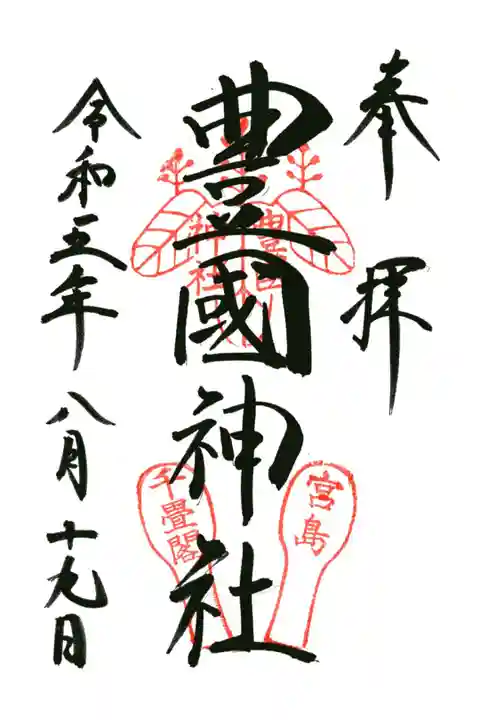 奉拝
豊國神社
豊國神社
宮島
千畳閣
令和五年八月十九日